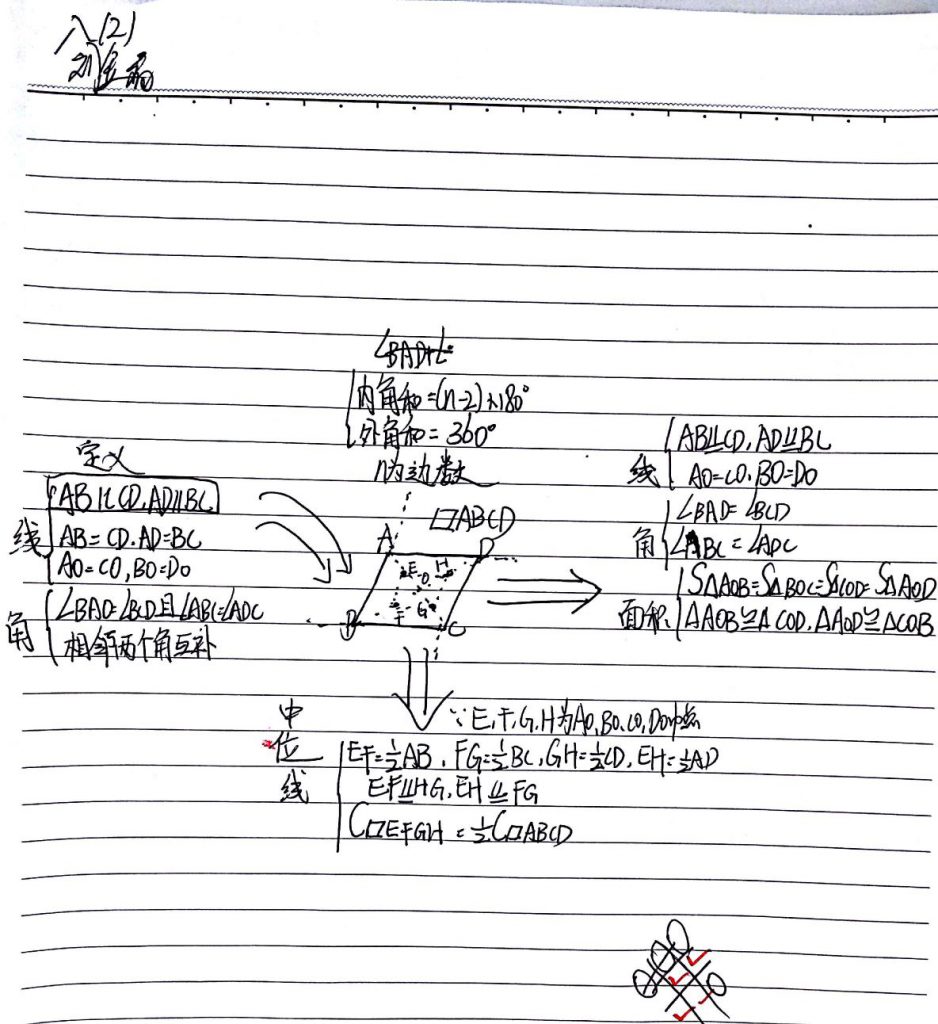 八(2)
∠BAD+∠
内角和=(n-2)×180°
外角和=360°
n为边数
定义
线
AB∥CD,AD∥BC
AB=CD.AD=BC
AO=CO,BO=DO
角
∠BAD=∠BCD且∠ABC=∠ADC
相邻两个角互补
▱ABCD
A D
E H
O
F G
B C
线
AB⫽CD,AD⫽BC
AO=CO,BO=DO
角
∠BAD=∠BCD
∠ABC=∠ADC
面积
S△AOB=S△BOC=S△COD=S△AOD
△AOB≌△COD,△AOD≌△COB
∵E,F,G,H为AO,BO,CO,DO中点
中位线
EF=½AB,FG=½BC,GH=½CD,EH=½AD
EF⫽HG,EH⫽FG
C▱EFGH=½C▱ABCD